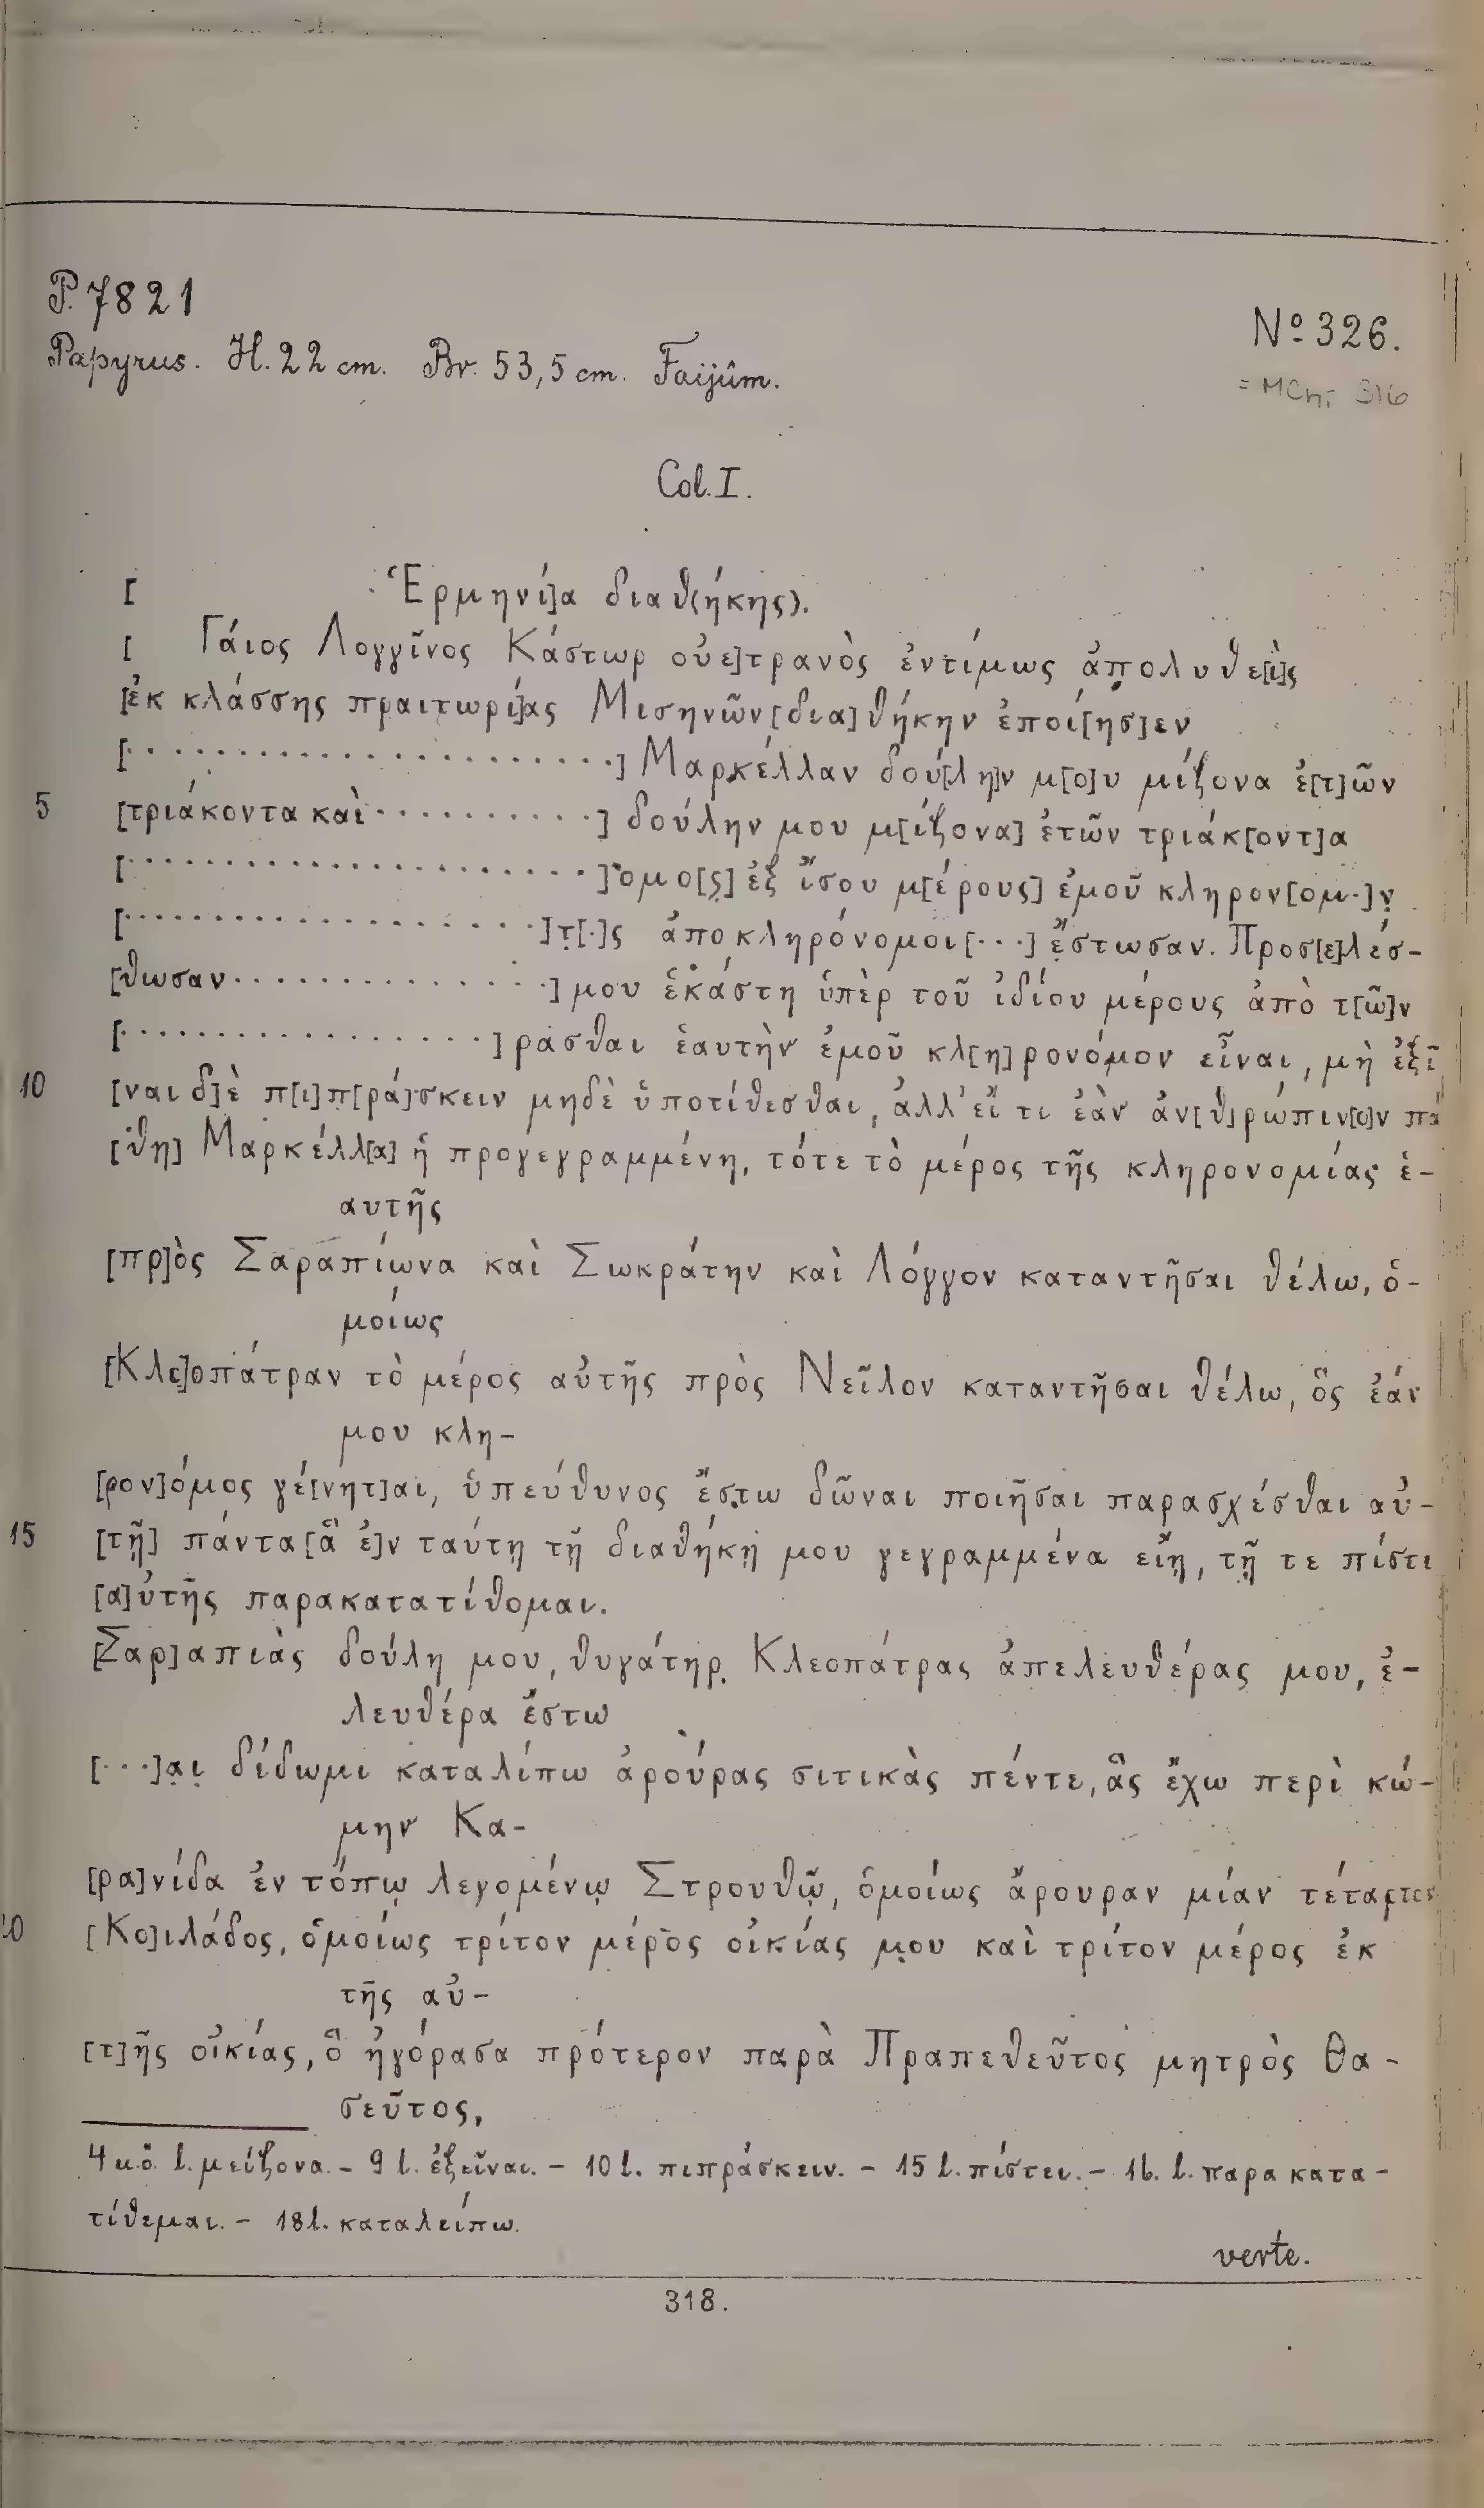 P. 7821
Nº 326.
Papyrus. H. 22 cm. Br. 53,5 cm. Faijûm.
= MChr 316
Col. I.
[ Ἑρμηνί]α διαθ(ήκης).
[ Γάιος Λογγῖνος Κάστωρ οὐε]τρανὸς ἐντίμως ἀπ̣ολυθε[ὶ]ς
[ἐκ κλάσσης πραιτωρί]ας Μισηνῶν [δια]θήκην ἐποί[ησ]εν
[· · · · · · · · · · · · · · · · · · · · ·] Μαρκέλλαν δού[λη]ν μ[ο]υ μίζονα ἐ[τ]ῶν
5 [τριάκοντα καὶ · · · · · · · · · · ·] δούλην μου μ[ίζονα] ἐτῶν τριάκ[οντ]α
[· · · · · · · · · · · · · · · · · · · · ·]ομο[ς̣] ἐξ ἴσου μ[έρους] ἐμοῦ κληρον[ομ·]ν̣
[· · · · · · · · · · · · · · · · · · ·]τ̣[·]ς ἀποκληρόνομοι [· · ·] ἔ̣στωσαν. Προσ[ε]λέσ-
[θωσαν · · · · · · · · · · · · · ·] μου ἑκάστη ὑπὲρ τοῦ ἰδίου μέρους ἀπὸ τ[ῶ]ν
[· · · · · · · · · · · · · · · ·]ρασθαι ἑαυτὴν ἐμοῦ κλ[η]ρονόμον εἶναι, μὴ ἐξῖ
10 [ναι δ]ὲ π[ι]π[ρά]σκειν μηδὲ ὑποτίθεσθαι, ἀλλ' εἴ τι ἐὰν ἀν[θ]ρώπιν[ο]ν πά
[θη] Μαρκέλλ[α] ἡ προγεγραμμένη, τότε τὸ μέρος τῆς κληρονομίας ἑ-
αυτῆς
[πρ]ὸς Σαραπίωνα καὶ Σωκράτην καὶ Λόγγον καταντῆσαι θέλω, ὁ-
μοίως
[Κλε]οπάτραν τὸ μέρος αὐτῆς πρὸς Νεῖλον καταντῆσαι θέλω, ὃς ἐάν
μου κλη-
[ρον]όμος γέ[νητ]αι, ὑπεύθυνος ἔστ̣ω δῶναι ποιῆσαι παρασχέσθαι αὐ-
15 [τῇ] πάντα [ἃ ἐ]ν ταύτῃ τῇ διαθήκῃ μου γεγραμμένα εἴη, τῇ τε πίστι
[α]ὐτῆς παρακατατίθομαι.
[Σαρ]απιὰς δούλη μου, θυγάτηρ̣ Κλεοπάτρας ἀπελευθέρας μου, ἐ-
λευθέρα ἔστω
[· · ·]α̣ι̣ δίδωμι καταλίπω ἀρούρας σιτικὰς πέντε, ἃς ἔχω περὶ κώ-
μην Κα-
[ρα]νίδα ἐν τόπῳ λεγομένῳ Στρουθῷ, ὁμοίως ἄρουραν μίαν τέταρτον
20 [Κο]ιλάδος, ὁμοίως τρίτον μέρος οἰκίας μ̣ου καὶ τρίτον μέρος ἐκ
τῆς αὐ-
[τ]ῆς οἰκίας, ὃ ἠγόρασα πρότερον παρὰ Πραπεθεῦτος μητρὸς Θα-
σεῦτος,
4 u. ö. l. μείζονα. – 9 l. ἐξεῖναι. – 10 l. πιπράσκειν. – 15 l. πίστει. – 16. l. παρακατα-
τίθεμαι. – 18 l. καταλείπω.
verte.
318.